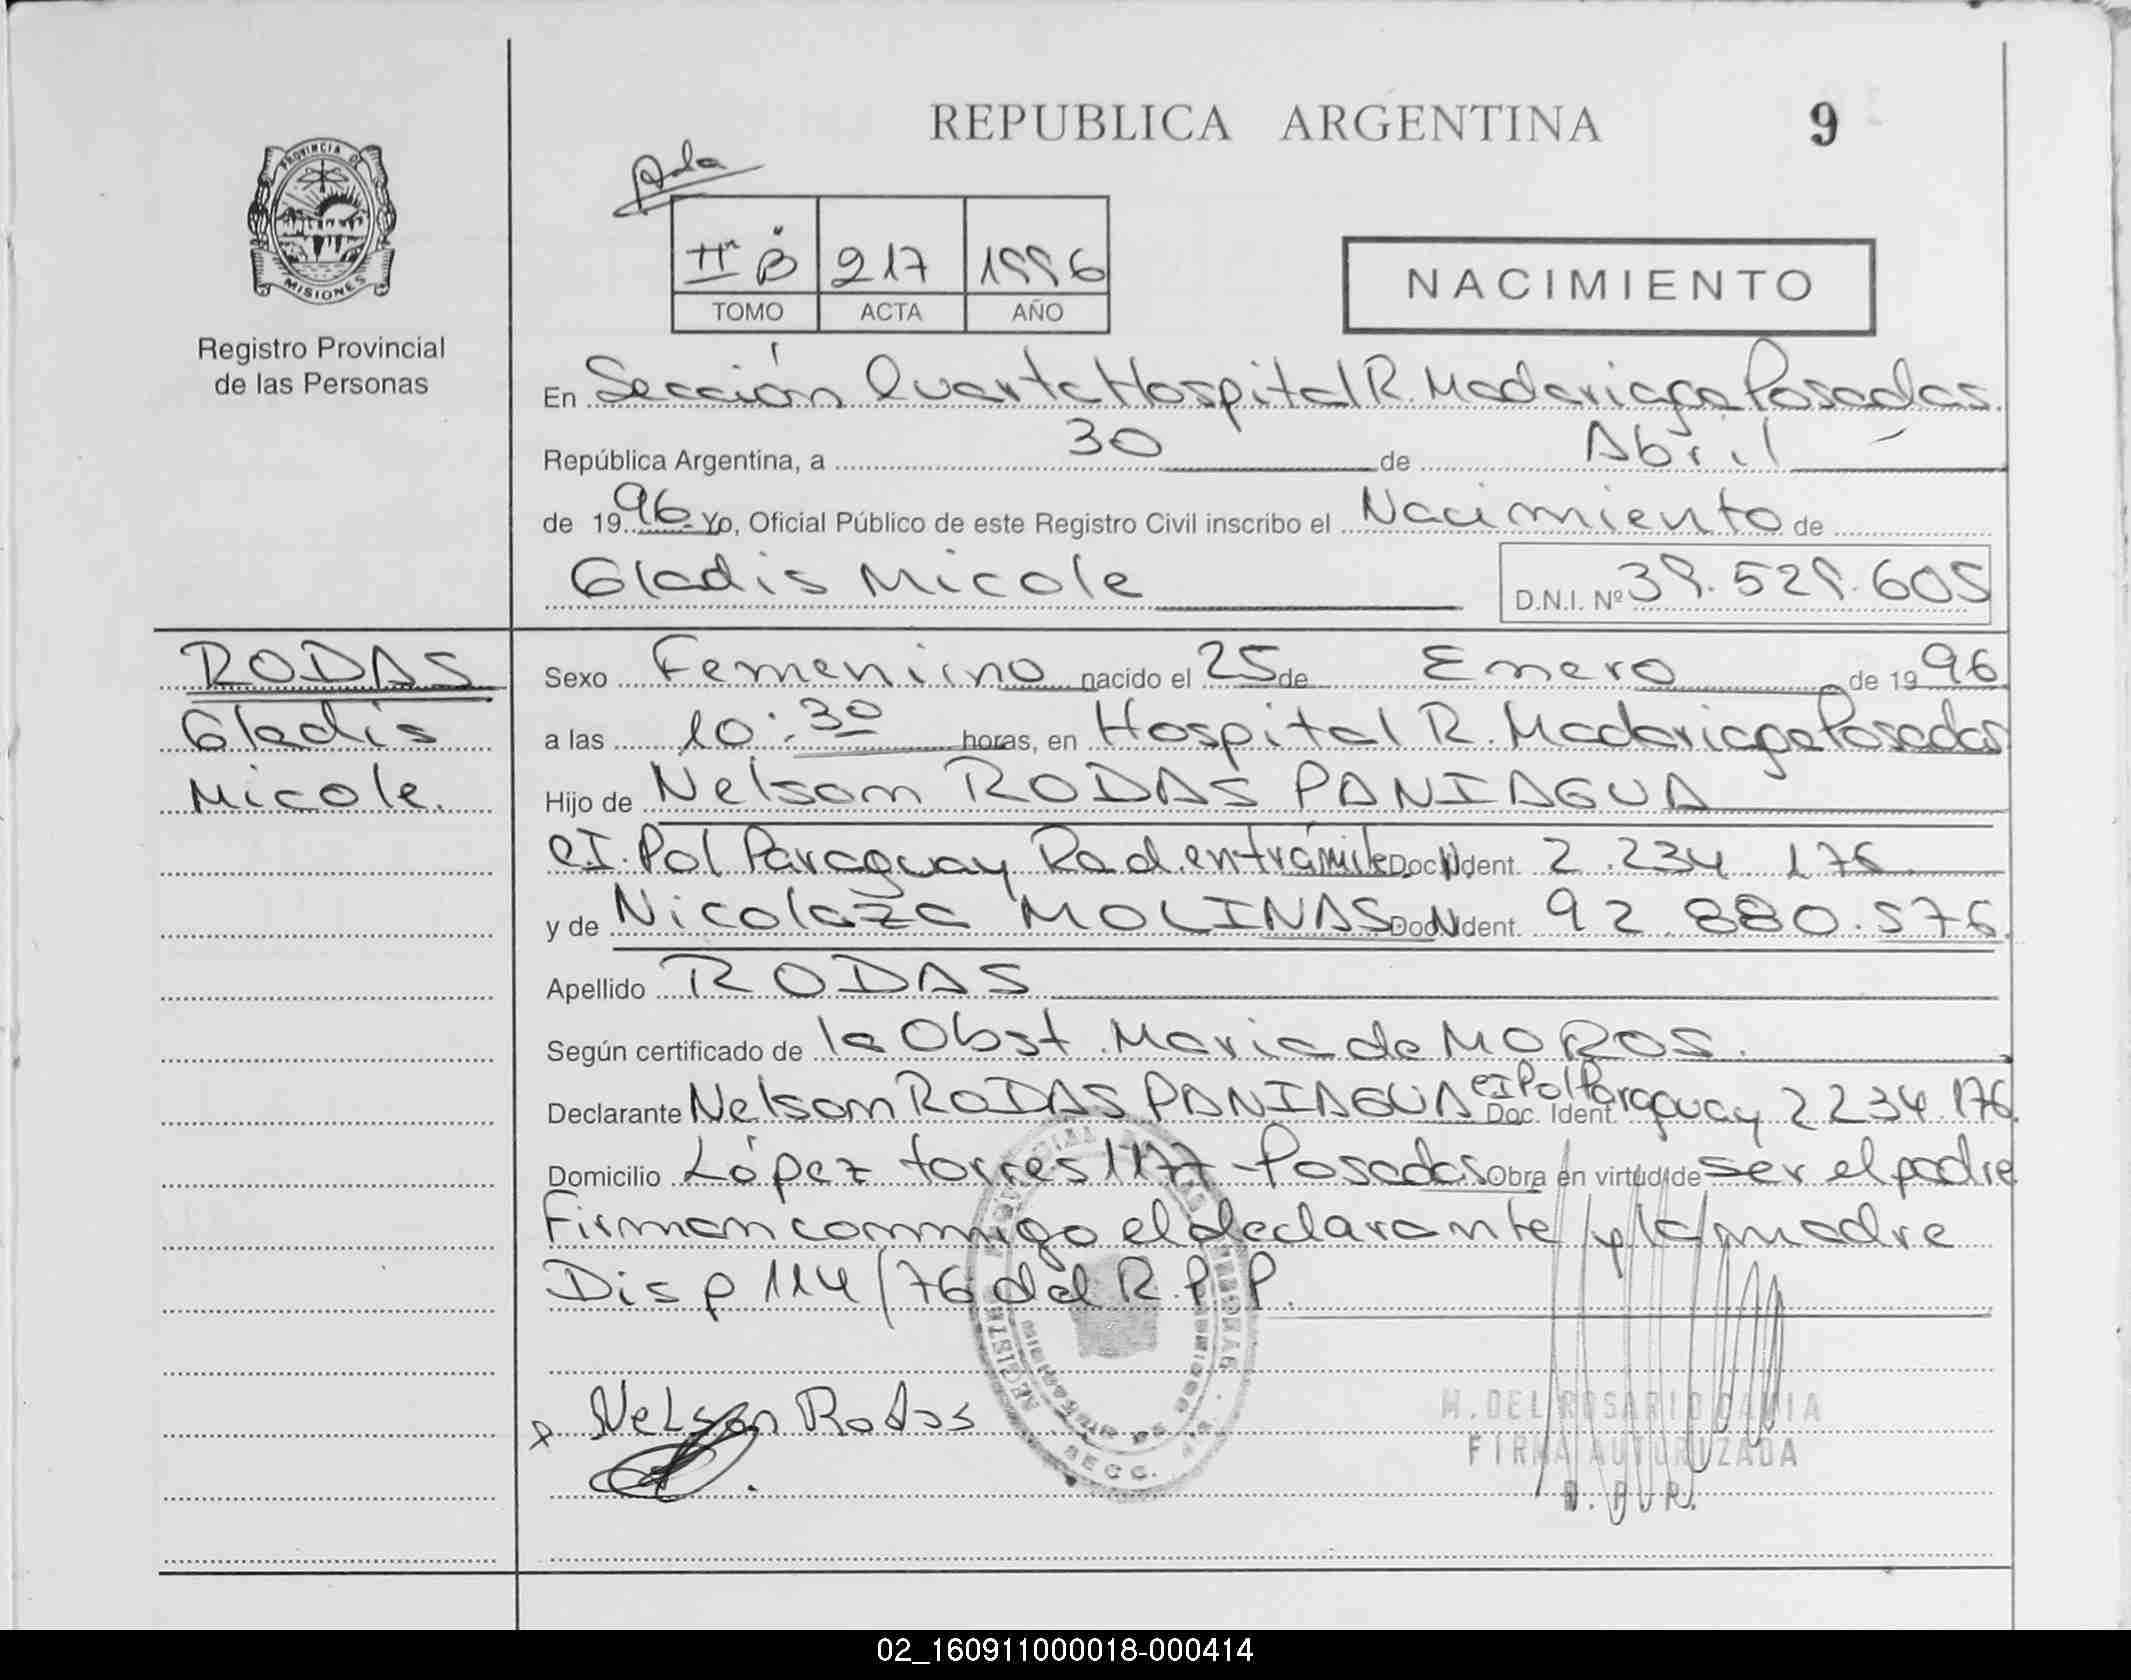 REPUBLICA ARGENTINA 9
PROVINCIA DE
MISIONES
Registro Provincial
de las Personas
Ada
IIº B 217 1996
TOMO ACTA AÑO
NACIMIENTO
En Sección Cuarta Hospital R. Madariaga Posadas.
República Argentina, a 30 de Abril
de 1996 Yo, Oficial Público de este Registro Civil inscribo el Nacimiento de
Gladis Micole D.N.I. Nº 39.529.605
RODAS
Gladis
Micole.
Sexo Femenino nacido el 25 de Enero de 1996
a las 10:30 horas, en Hospital R. Madariaga Posadas
Hijo de Nelson RODAS PANIAGUA
C.I. Pol Paraguay Rad. en trámite Doc. Ident. 2.234 176
y de Nicolaza MOLINAS Doc. Ident. 92.880.576.
Apellido RODAS
Según certificado de la Obst. Maria de MOROS.
Declarante Nelson RODAS PANIAGUA Doc. Ident. CI Pol Paraguay 2234.176.
Domicilio López torres 1177 - Posadas Obra en virtud de ser el padre
Firman conmigo el declarante y la madre
Disp 114/76 del R.P.P.
Nelson Rodas
SECC.
M. DEL ROSARIO
FIRMA AUTORIZADA
02_160911000018-000414